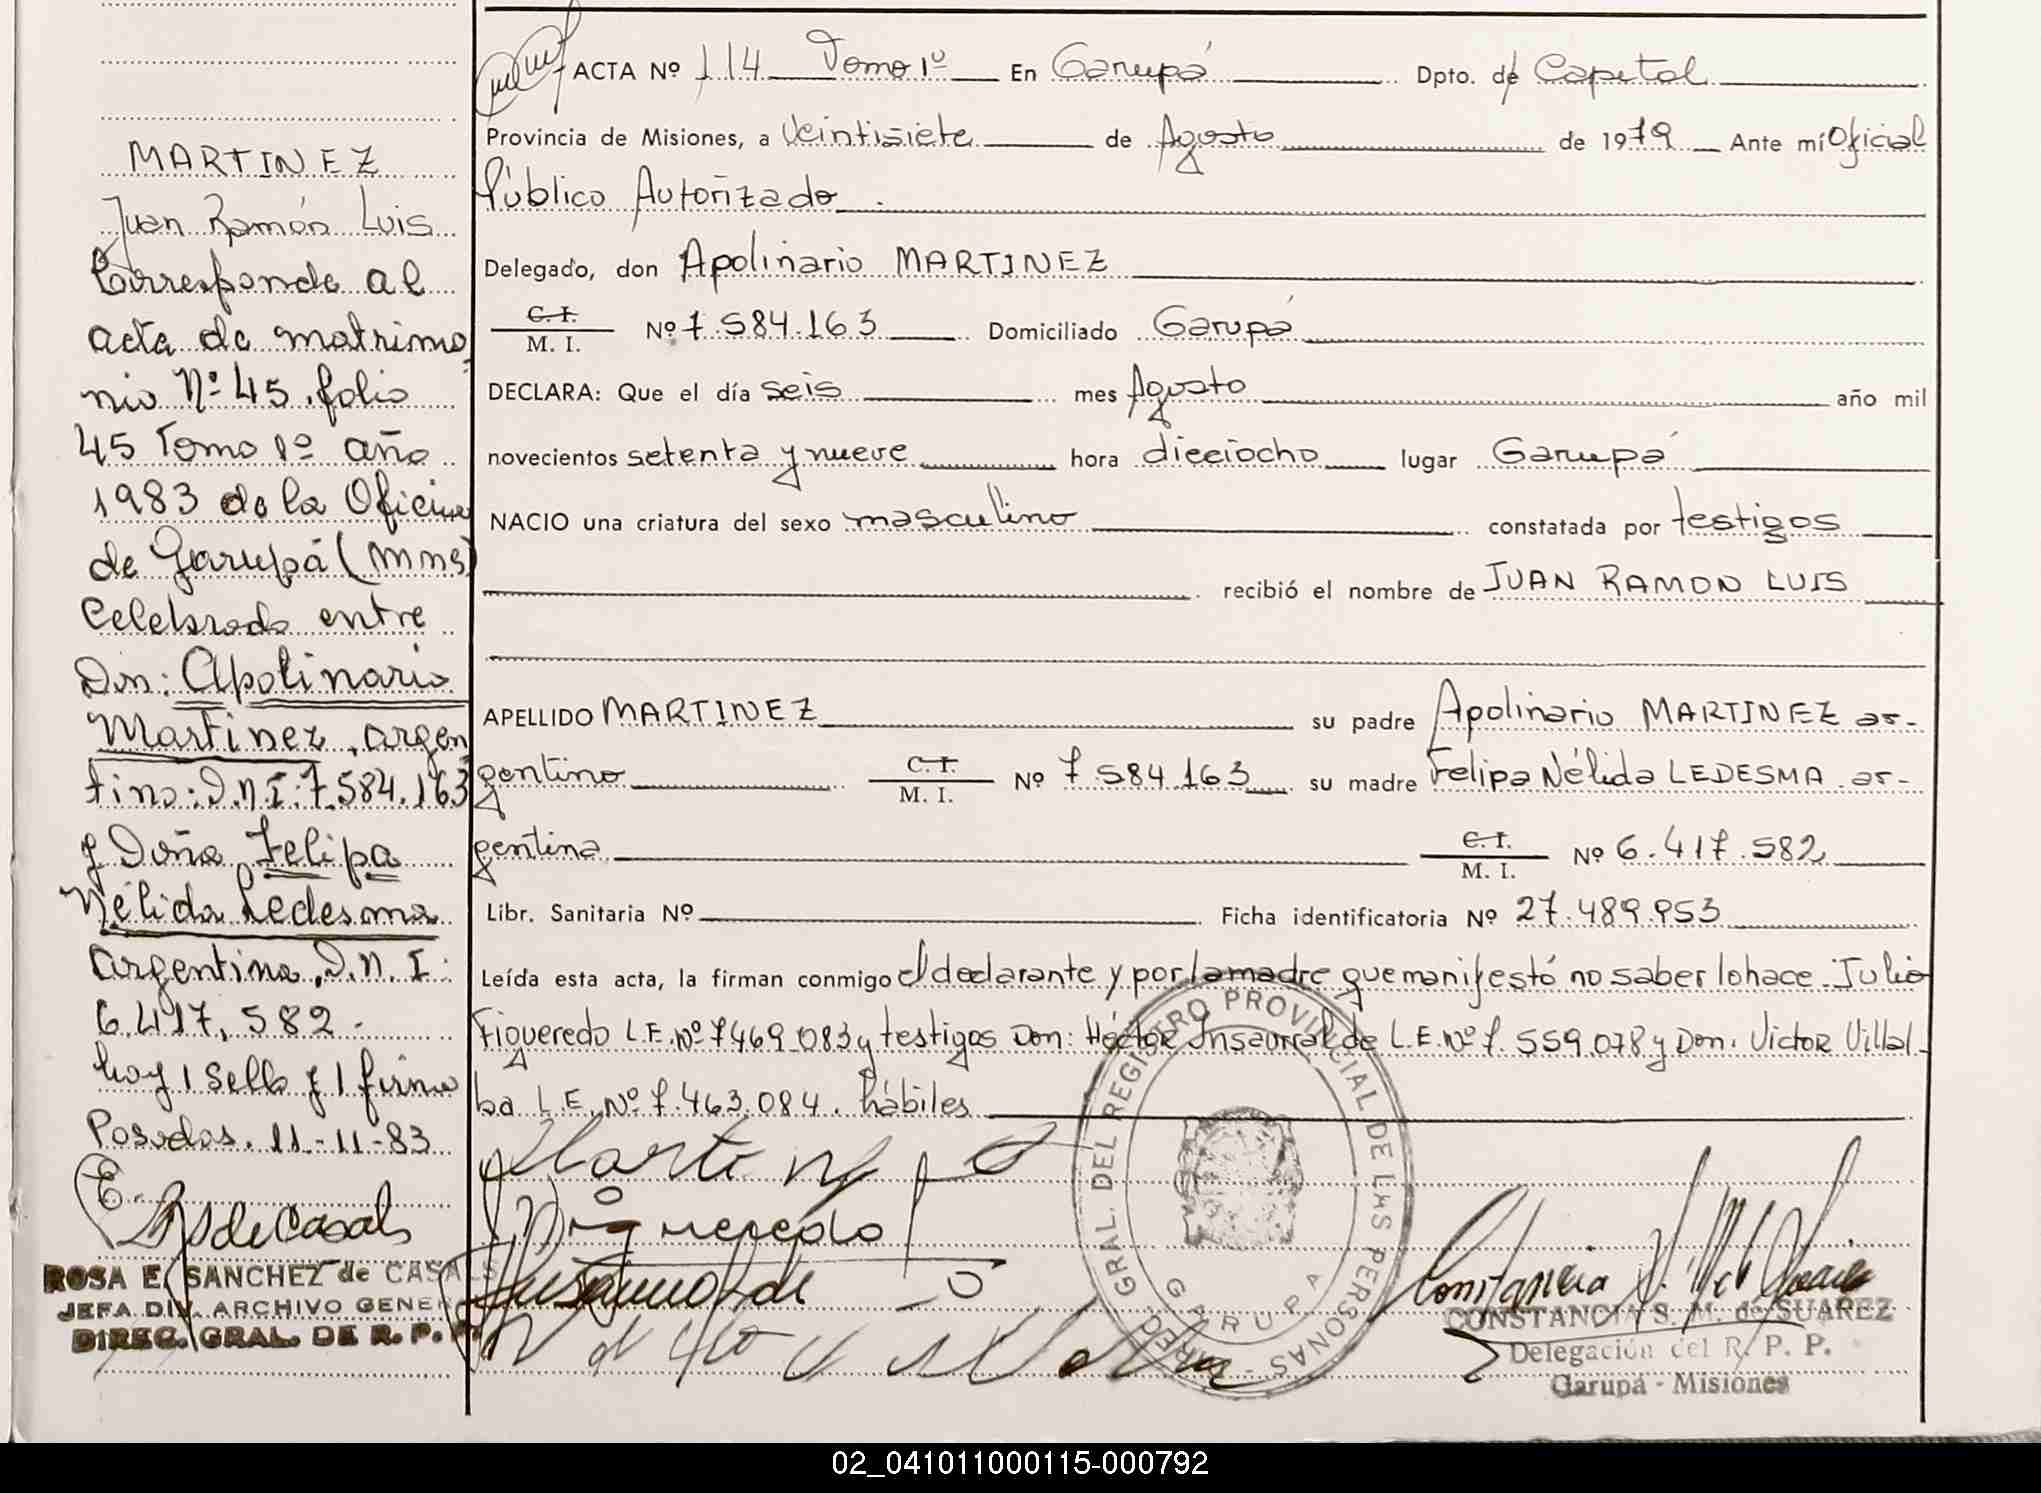 MARTINEZ
Juan Ramón Luis
Corresponde al
acta de matrimo
nio Nº 45. folio
45 Tomo 1º año
1983 de la Oficina
de Garupá (Mnes)
Celebrado entre
Don: Apolinario
Martinez, argen
tino: D.N.I: 7.584.163
y Doña Felipa
Nélida Ledesma
argentina, D.N.I:
6.417.582 -
hay 1 sello y 1 firma
Posadas. 11-11-83
ROSA E. SANCHEZ de CASALS
JEFA DIV. ARCHIVO GENERAL
DIREC. GRAL. DE R. P. P.
ACTA Nº 114 Tomo 1º En Garupá Dpto. de Capital
Provincia de Misiones, a Veintisiete de Agosto de 1979 Ante mí Oficial
Público Autorizado.
Delegado, don Apolinario MARTINEZ
C. I.
M. I. Nº 7.584.163 Domiciliado Garupá
DECLARA: Que el día seis mes Agosto año mil
novecientos setenta y nueve hora dieciocho lugar Garupá
NACIO una criatura del sexo masculino constatada por testigos
recibió el nombre de JUAN RAMON LUIS
APELLIDO MARTINEZ su padre Apolinario MARTINEZ ar-
gentino C. I.
M. I. Nº 7.584.163 su madre Felipa Nélida LEDESMA ar-
gentina C. I.
M. I. Nº 6.417.582
Libr. Sanitaria Nº Ficha identificatoria Nº 27.489.953
Leída esta acta, la firman conmigo el declarante y por la madre que manifestó no saber lo hace Julio
Figueredo L.E. Nº 7469.083 y testigos Don: Héctor Insaurralde L.E. Nº 7.559.078 y Don. Victor Villal-
ba L.E. Nº 7.463.084. hábiles
GRAL. DEL REGISTRO PROVINCIAL DE LAS PERSONAS
GARUPA
CONSTANCIA S. M. de SUAREZ
Delegación del R. P. P.
Garupá - Misiones
02_041011000115-000792